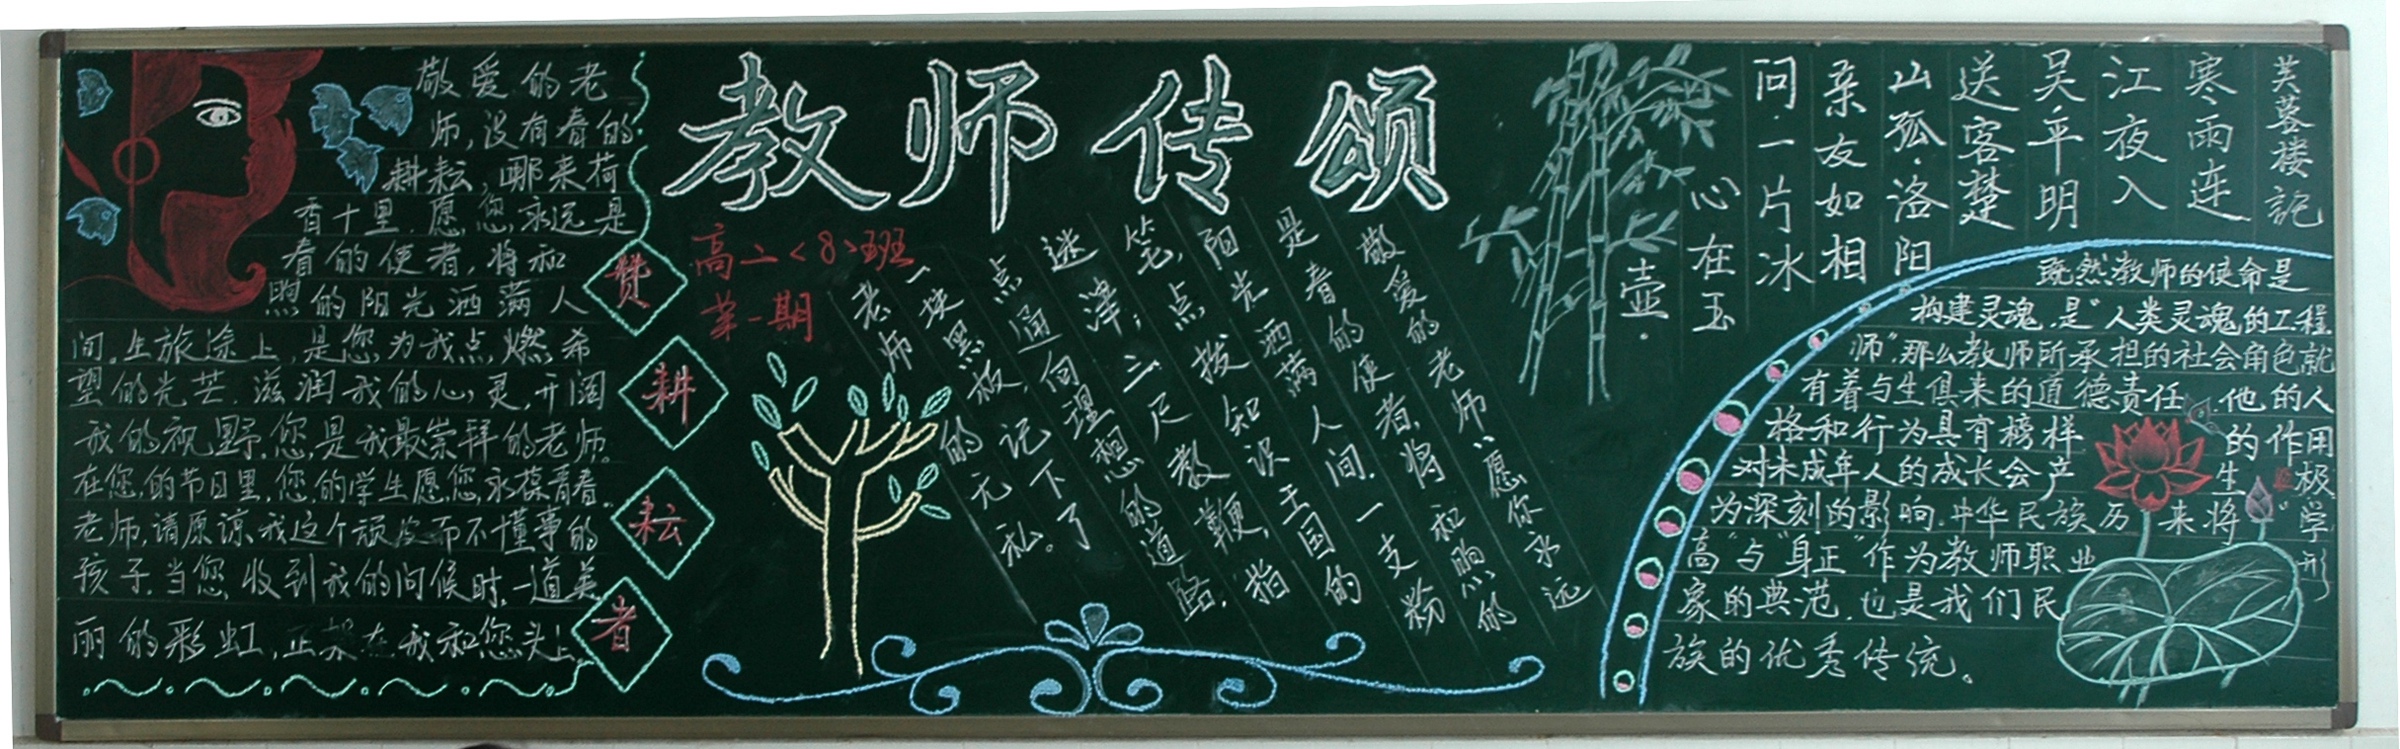 敬爱的老
师,没有春的
耕耘,哪来荷
香十里.愿您永远是
春的使者,将和
煦的阳光洒满人
间.生旅途上,是您为我点燃希
望的光芒.滋润我的心灵,开阔
我的视野.您是我最崇拜的老师.
在您的节日里,您的学生愿您永葆青春。
老师,请原谅我这个顽皮而不懂事的
孩子.当您收到我的问候时,一道美
丽的彩虹,正架在我和您头上
赞
耕
耘
者
教师传颂
高二<8>班
第一期
敬爱的老师,愿你永远
是春的使者,将和煦的
阳光洒满人间.一支粉
笔,点拨知识王国的
迷津;三尺教鞭,指
点通向理想的道路.
一块黑板记下了
老师的无私。
芙蓉楼记
寒雨连
江夜入
吴.平明
送客楚
山孤.洛阳
亲友如相
问.一片冰
心在玉
壶.
既然教师的使命是
构建灵魂,是"人类灵魂的工程
师",那么教师所承担的社会角色就
有着与生俱来的道德责任.他的人
格和行为具有榜样的作用
对未成年人的成长会产生极
为深刻的影响.中华民族历来将"学
高"与"身正"作为教师职业形
象的典范.也是我们民
族的优秀传统。